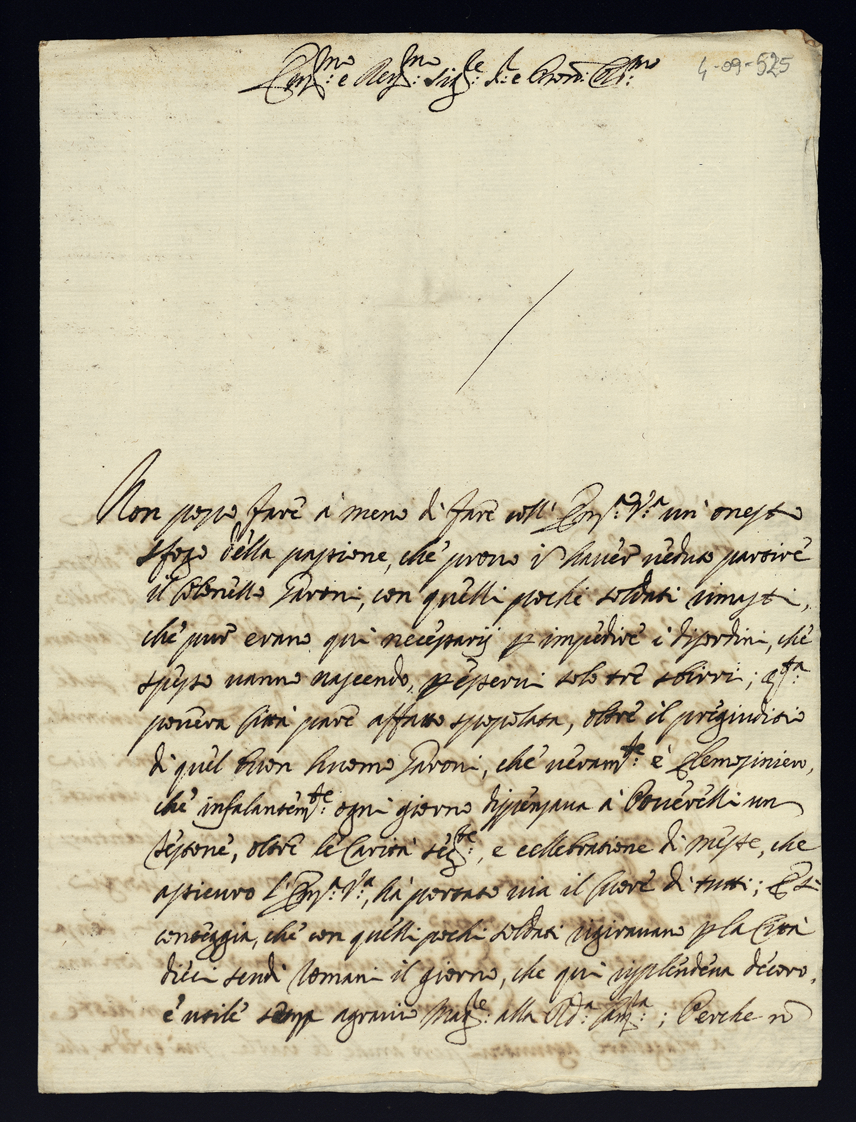 Em.mo e Rev.mo Sig.re S.r e Pron: Col.mo
4-09-525
Non posso fare à meno di fare coll' Em.a V.a un' onesto
sfogo della passione, che provo in haver veduto partire
il Colonello Paroni, con quelli pochi soldati rimasti,
che pur erano qui necessarij p impedire i disordini, che
spesso vanno nascendo, p esservi solo trè sbirri; q.sta
povera Città pare affatto spopolata, oltre il pregiuditio
di quel buon huomo Paroni, che veram.te è Elemosiniero,
che infalantem.te ogni giorno dispensava à Poverelli un
testone, oltre le Carità seg.te, e cellebratione di messe, che
assicuro l'Em.a V.a, hà portato via il cuore di tutti; Et si
conteggia, che con quelli pochi soldati rigiravano p la Città
dieci scudi Romani il giorno, che qui risplendeva decoro,
è utile senza agravio mag.re alla R.da Cam.a; Perche nõ